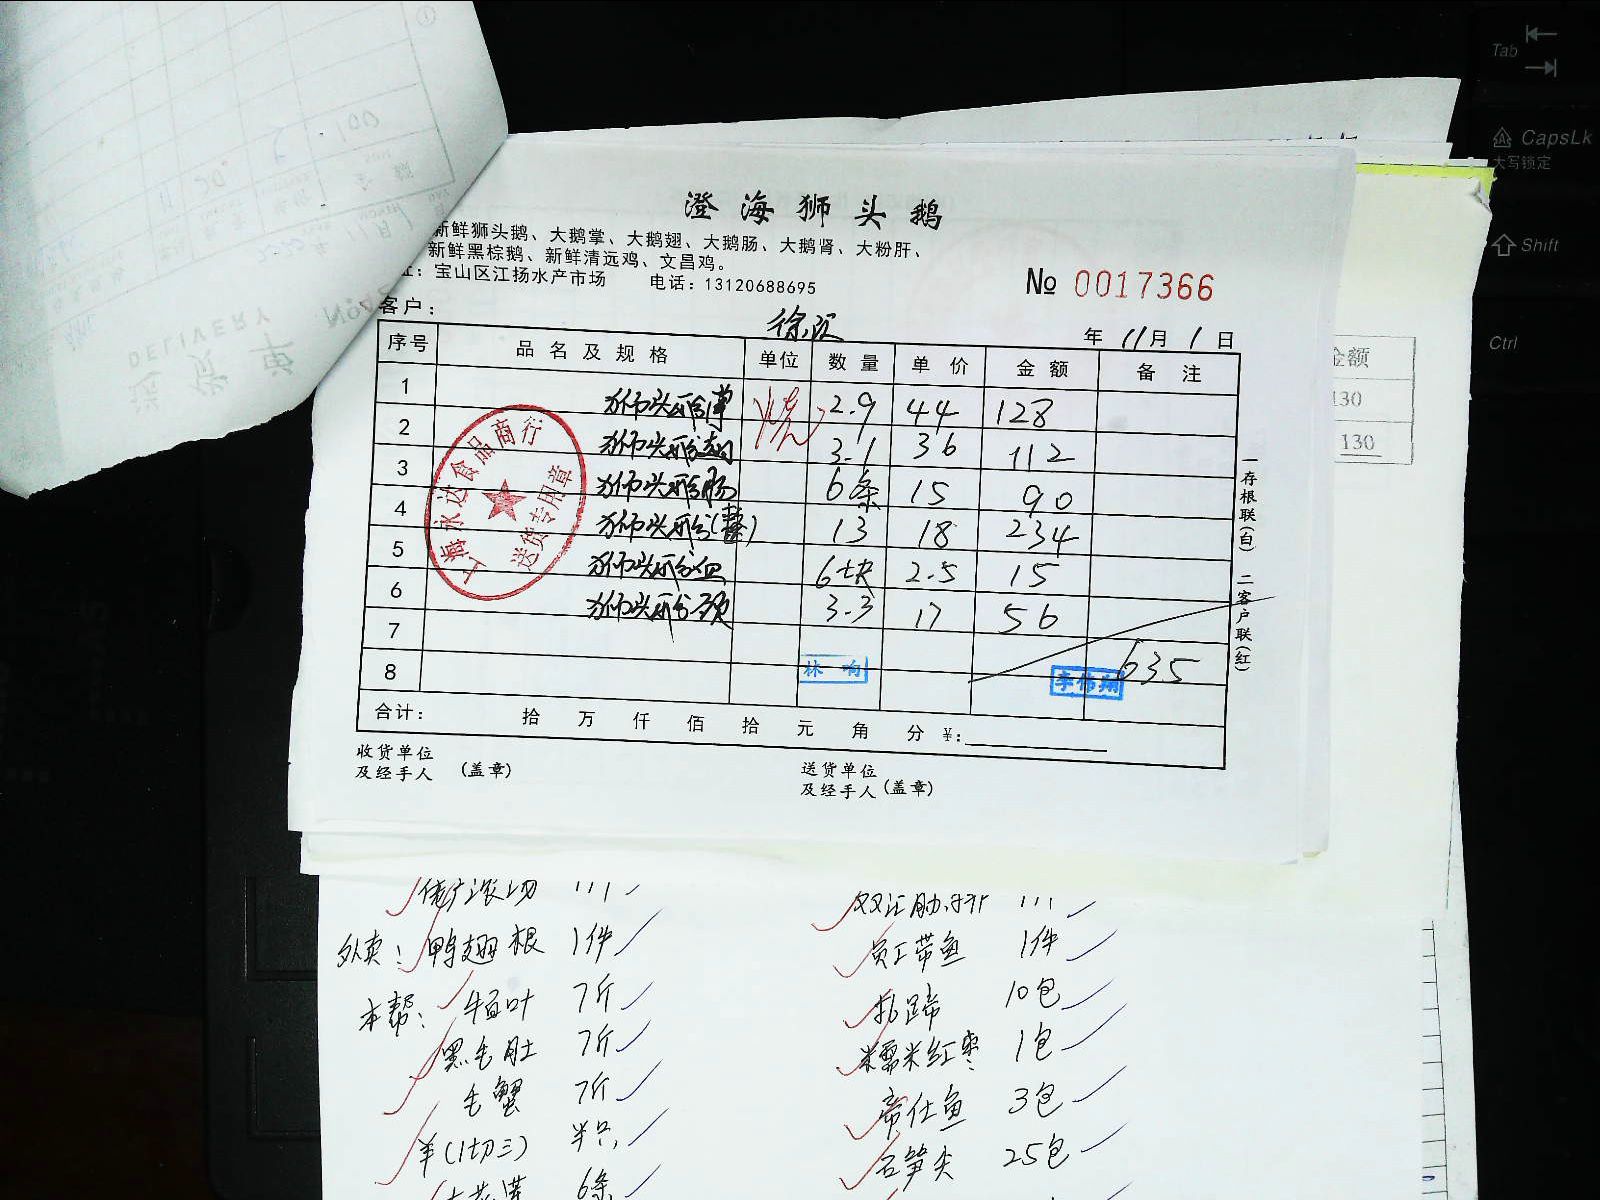 澄海狮头鹅
新鲜狮头鹅、大鹅掌、大鹅翅、大鹅肠、大鹅肾、大粉肝、
新鲜黑棕鹅、新鲜清远鸡、文昌鸡。
址：宝山区江扬水产市场 电话：13120688695
№ 0017366
客户：
年 11月 1日
序号 品名及规格 单位 数量 单价 金额 备注
1 狮头鹅掌 2.9 44 128
2 狮头鹅翅 3.1 36 112
3 狮头鹅肠 6条 15 90
4 狮头鹅(整) 13 18 234
5 狮头鹅血 6块 2.5 15
6 狮头鹅颈 3.3 17 56
7
8 635
林 响
李伟翔
合计： 拾 万 仟 佰 拾 元 角 分 ¥:
收货单位
及经手人 (盖章)
送货单位
及经手人(盖章)
一存根联(白) 二客户联(红)
上海永达食品商行
送货专用章
金额
130
130
送货单
DELIVERY
外卖： 鸭翅根 1件
员工带鱼 1件
本帮： 牛百叶 7斤
扎蹄 10包
黑毛肚 7斤
糯米红枣 1包
毛蟹 7斤
帝仕鱼 3包
羊(1切三) 半只
石笋尖 25包
6条
Tab
CapsLk
大写锁定
Shift
Ctrl